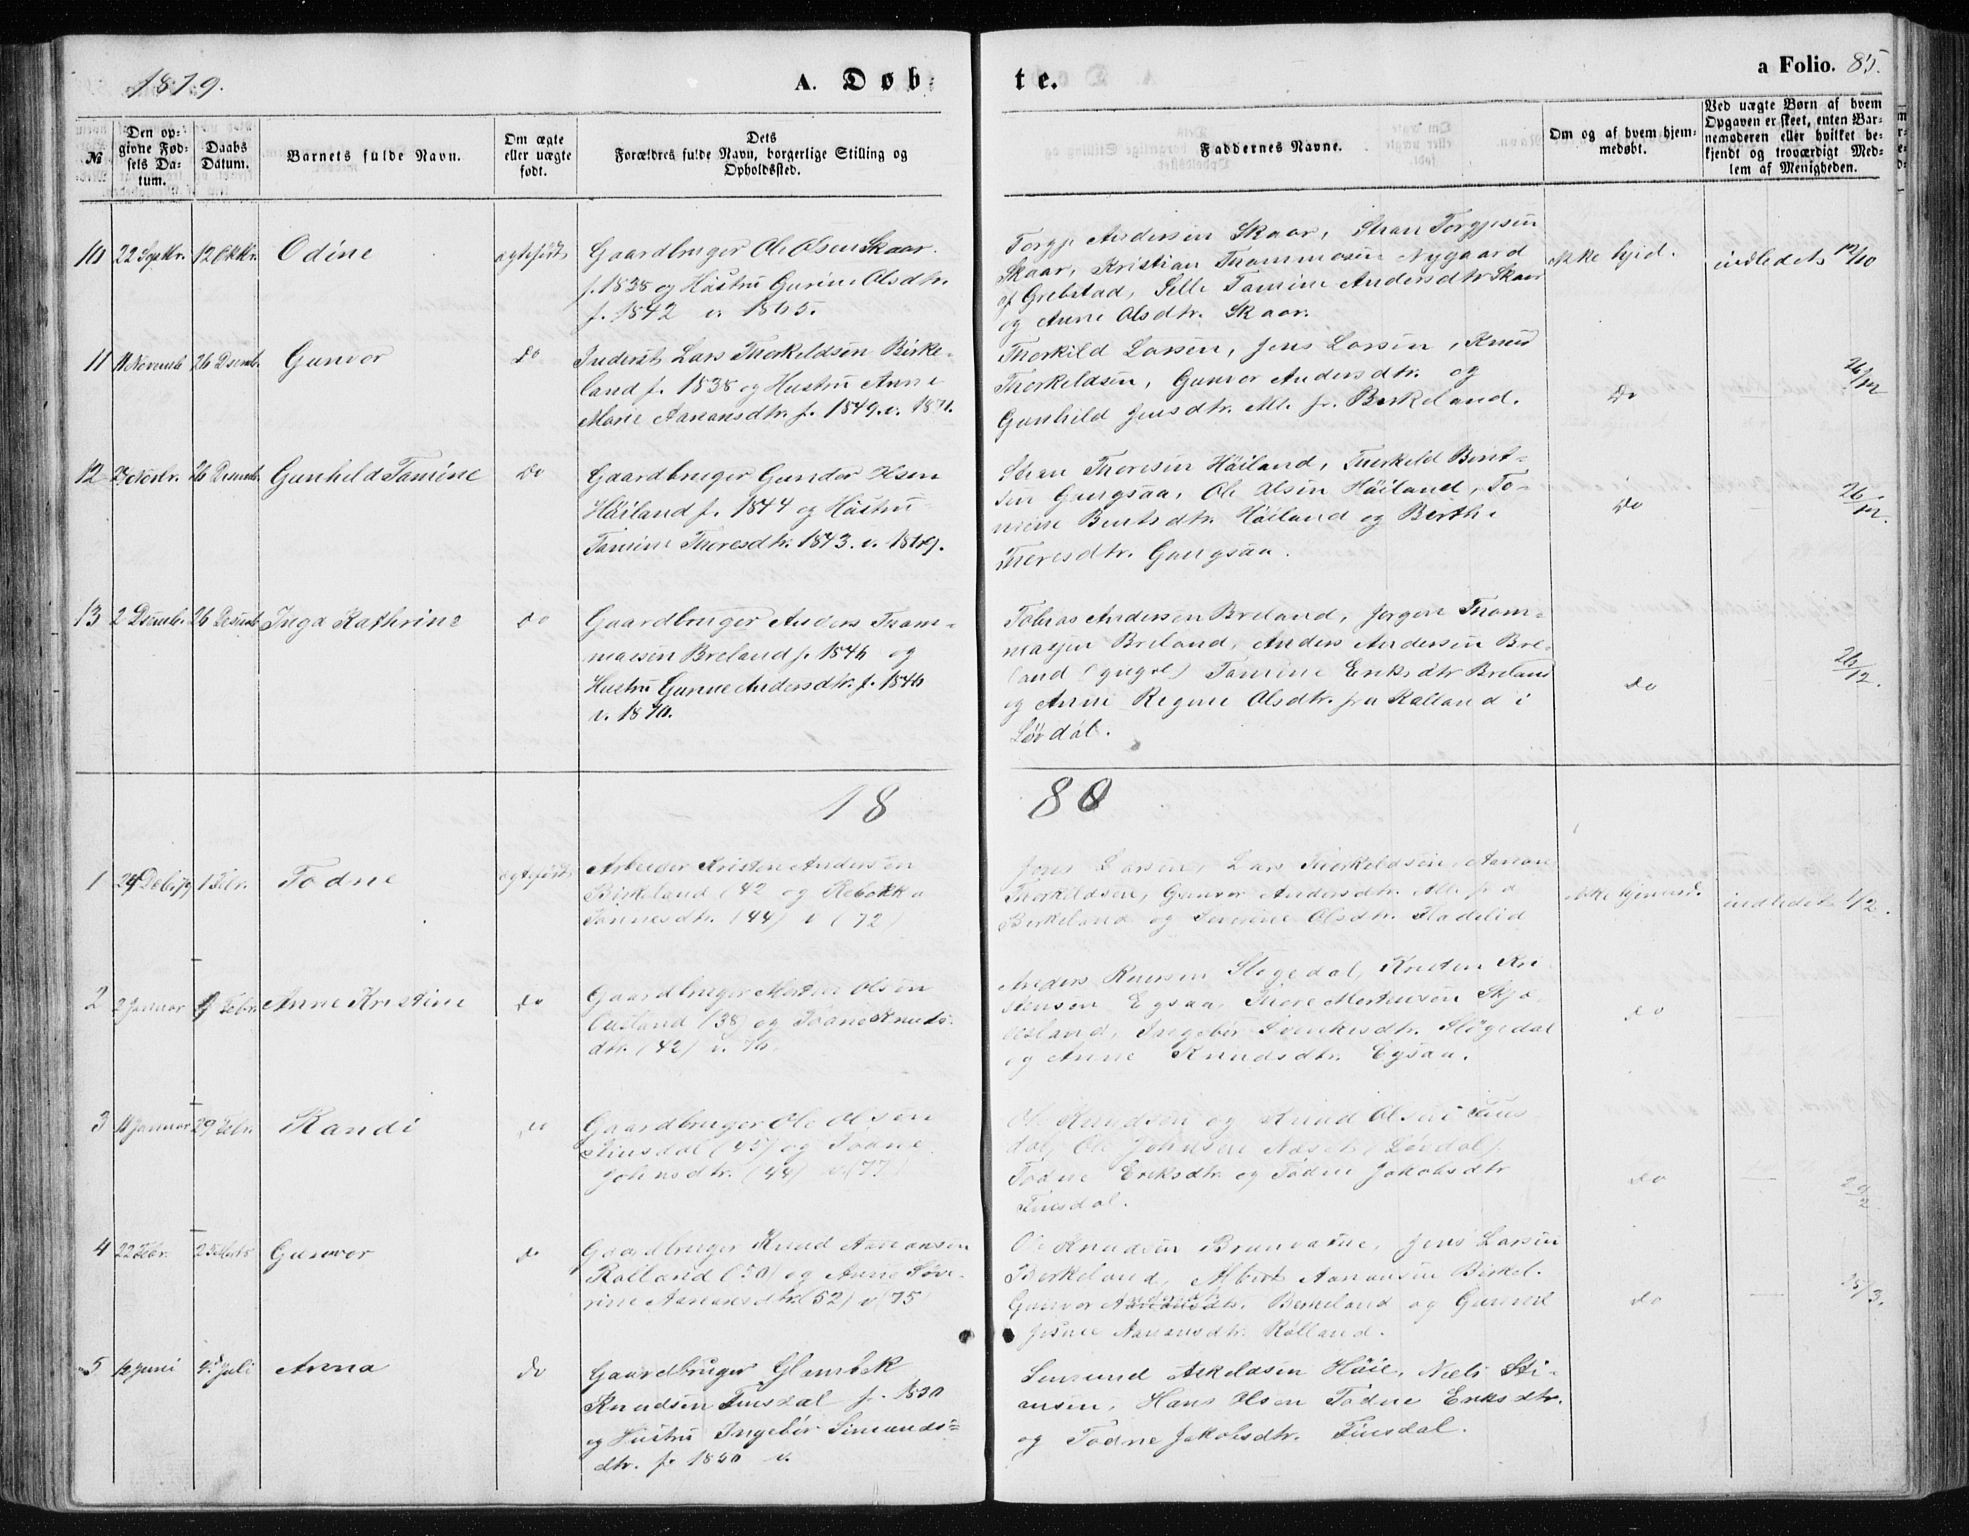 1879.
A. Døb-
te.
a Folio. 85.
№
Den op-
givne Fød-
sels Da-
tum.
Daabs
Datum.
Barnets fulde Navn.
Om ægte
eller uægte
født.
Dets
Forældres fulde Navn, borgerlige Stilling og
Opholdssted.
Faddernes Navne.
Om og af hvem hjem-
medøbt.
Ved uægte Børn af hvem
Opgaven er skeet, enten Bar-
nemoderen eller hvilket be-
kjendt og troværdigt Med-
lem af Menigheden.
10
22 Septr.
12 Oktbr.
Odine
ægtefødt
Gaardbruger Ole Olsen Skaar
f. 1838 og Hustru Gurine Olsdtr.
f. 1842 v. 1865.
Torgje Andersen Skaar, Stian Torgjesen
Skaar, Kristian Thommesen Nygaard
af Grebstad, Tomine Andersdtr Skaar
og Anne Olsdtr. Skaar.
ikke hjd.
indledet 12/10
11
11 Novemb
26 Desemb.
Gunvor
Do
Inderst Lars Thorkeldsen Birke-
land f. 1838 og Hustru Anne
Marie Aanansdtr. f. 1849. v. 1871.
Thorkild Larsen, Jens Larsen, Knud
Thorkeldsen, Gunvor Andersdtr. og
Gunhild Jensdtr. All. fr. Birkeland.
Do
26/12
12
26 Desemb.
Gunhild Tomine
Do
Gaardbruger Gundor Olsen
Høiland f. 1844 og Hustru
Tomine Thoresdtr. 1843. v. 1869.
Stian Thoresen Høiland, Thorkeld Bent-
sen Gangsaa, Ole Olsen Høiland, To-
mine Bentsdtr. Høiland og Berthe
Thoresdtr. Gangsaa.
Do
26/12.
13
2 Desemb.
26 Desemb.
Inga Kathrine
Do
Gaardbruger Anders Thom-
mesen Breland f. 1846 og
Hustru Gunne Andersdtr. f. 1846
v. 1870.
Tobias Andersen Breland, Jørgen Thom-
masen Breland, Anders Andersen Bre-
land (yngre) Tomine Eriksdtr Breland
og Anne Regine Olsdtr. fra Kalland i
Løvdal.
Do
26/12.
18
80
1
24 Dcbr 79
1 Febr.
Todne
ægtefødt
Arbeider Kristen Andersen
Birkeland (42 og Rebekka
Tønnesdtr. (44) v (72)
Jens Larsen, Lars Thorkeldsen, Aanan
Thorkeldsen, Gunvor Andersdtr. All. fra
Birkeland og Severine Olsdtr. Fladelid
ikke hjemmd.
indledet 1/2.
2
2 Januar
9 Febr.
Anne Kristine
Do
Gaardbruger Olsen
(38) og Joane Knuds-
dtr. (42) v. 76.
Anders Knusen Sløgedal, Kristen Kri
stensen Egsaa, Thore Mortensen
Ingebør dtr. Sløgedal
og Anne Knudsdtr. Egsaa.
Do
3
11 Januar
29 Febr.
Randi
Do
Gaardbruger Ole Olsen
Finsdal (45) og Joane
Johnsdtr. (44) v (77)
Ole Knudsen og Knud Olsen Fins
dal, Ole Johnsen (Løvdal)
Todne Eriksdtr. og Todne Jakobsdtr
Finsdal.
Do
29/2
4
22 Febr.
25 Marts
Gunvor
do
Gaardbruger Knud Aanansen
Rolland (50) og Anne Seve-
rine Aanansdtr. (52) v (75)
Ole Knudsen Brunvatne, Jens Larsen
Birkeland, Albert Aanansen Birkel.
Gunvor Birkeland og Gunvor
Aanansdtr. Rolland.
Do
25/3.
5
12 Juni
4de Juli
Anna
Do
Gaardbruger
Knudsen Finsdal f. 1850
og Hustru Ingebør Simunds-
dtr. f. 1850 v.
Simund Askeldsen Høie, Niels Sti-
ansen, Hans Olsen Todne Eriksdtr.
og Todne Jakobsdtr. Finsdal.